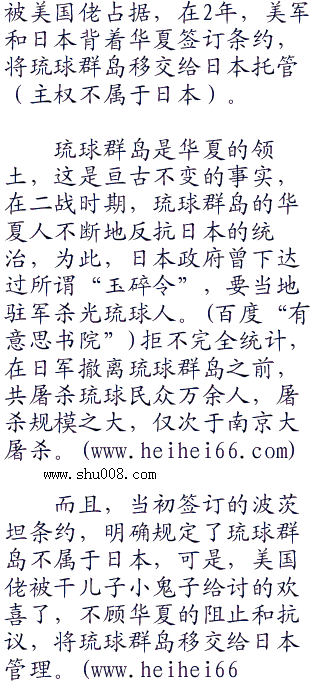 被美国佬占据，在2年，美军
和日本背着华夏签订条约，
将琉球群岛移交给日本托管
（主权不属于日本）。
琉球群岛是华夏的领
土，这是亘古不变的事实，
在二战时期，琉球群岛的华
夏人不断地反抗日本的统
治，为此，日本政府曾下达
过所谓“玉碎令”，要当地
驻军杀光琉球人。(百度“有
意思书院”)拒不完全统计，
在日军撤离琉球群岛之前，
共屠杀琉球民众万余人，屠
杀规模之大，仅次于南京大
屠杀。(www.heihei66.com)
www.shu008.com
而且，当初签订的波茨
坦条约，明确规定了琉球群
岛不属于日本，可是，美国
佬被干儿子小鬼子给讨的欢
喜了，不顾华夏的阻止和抗
议，将琉球群岛移交给日本
管理。(www.heihei66